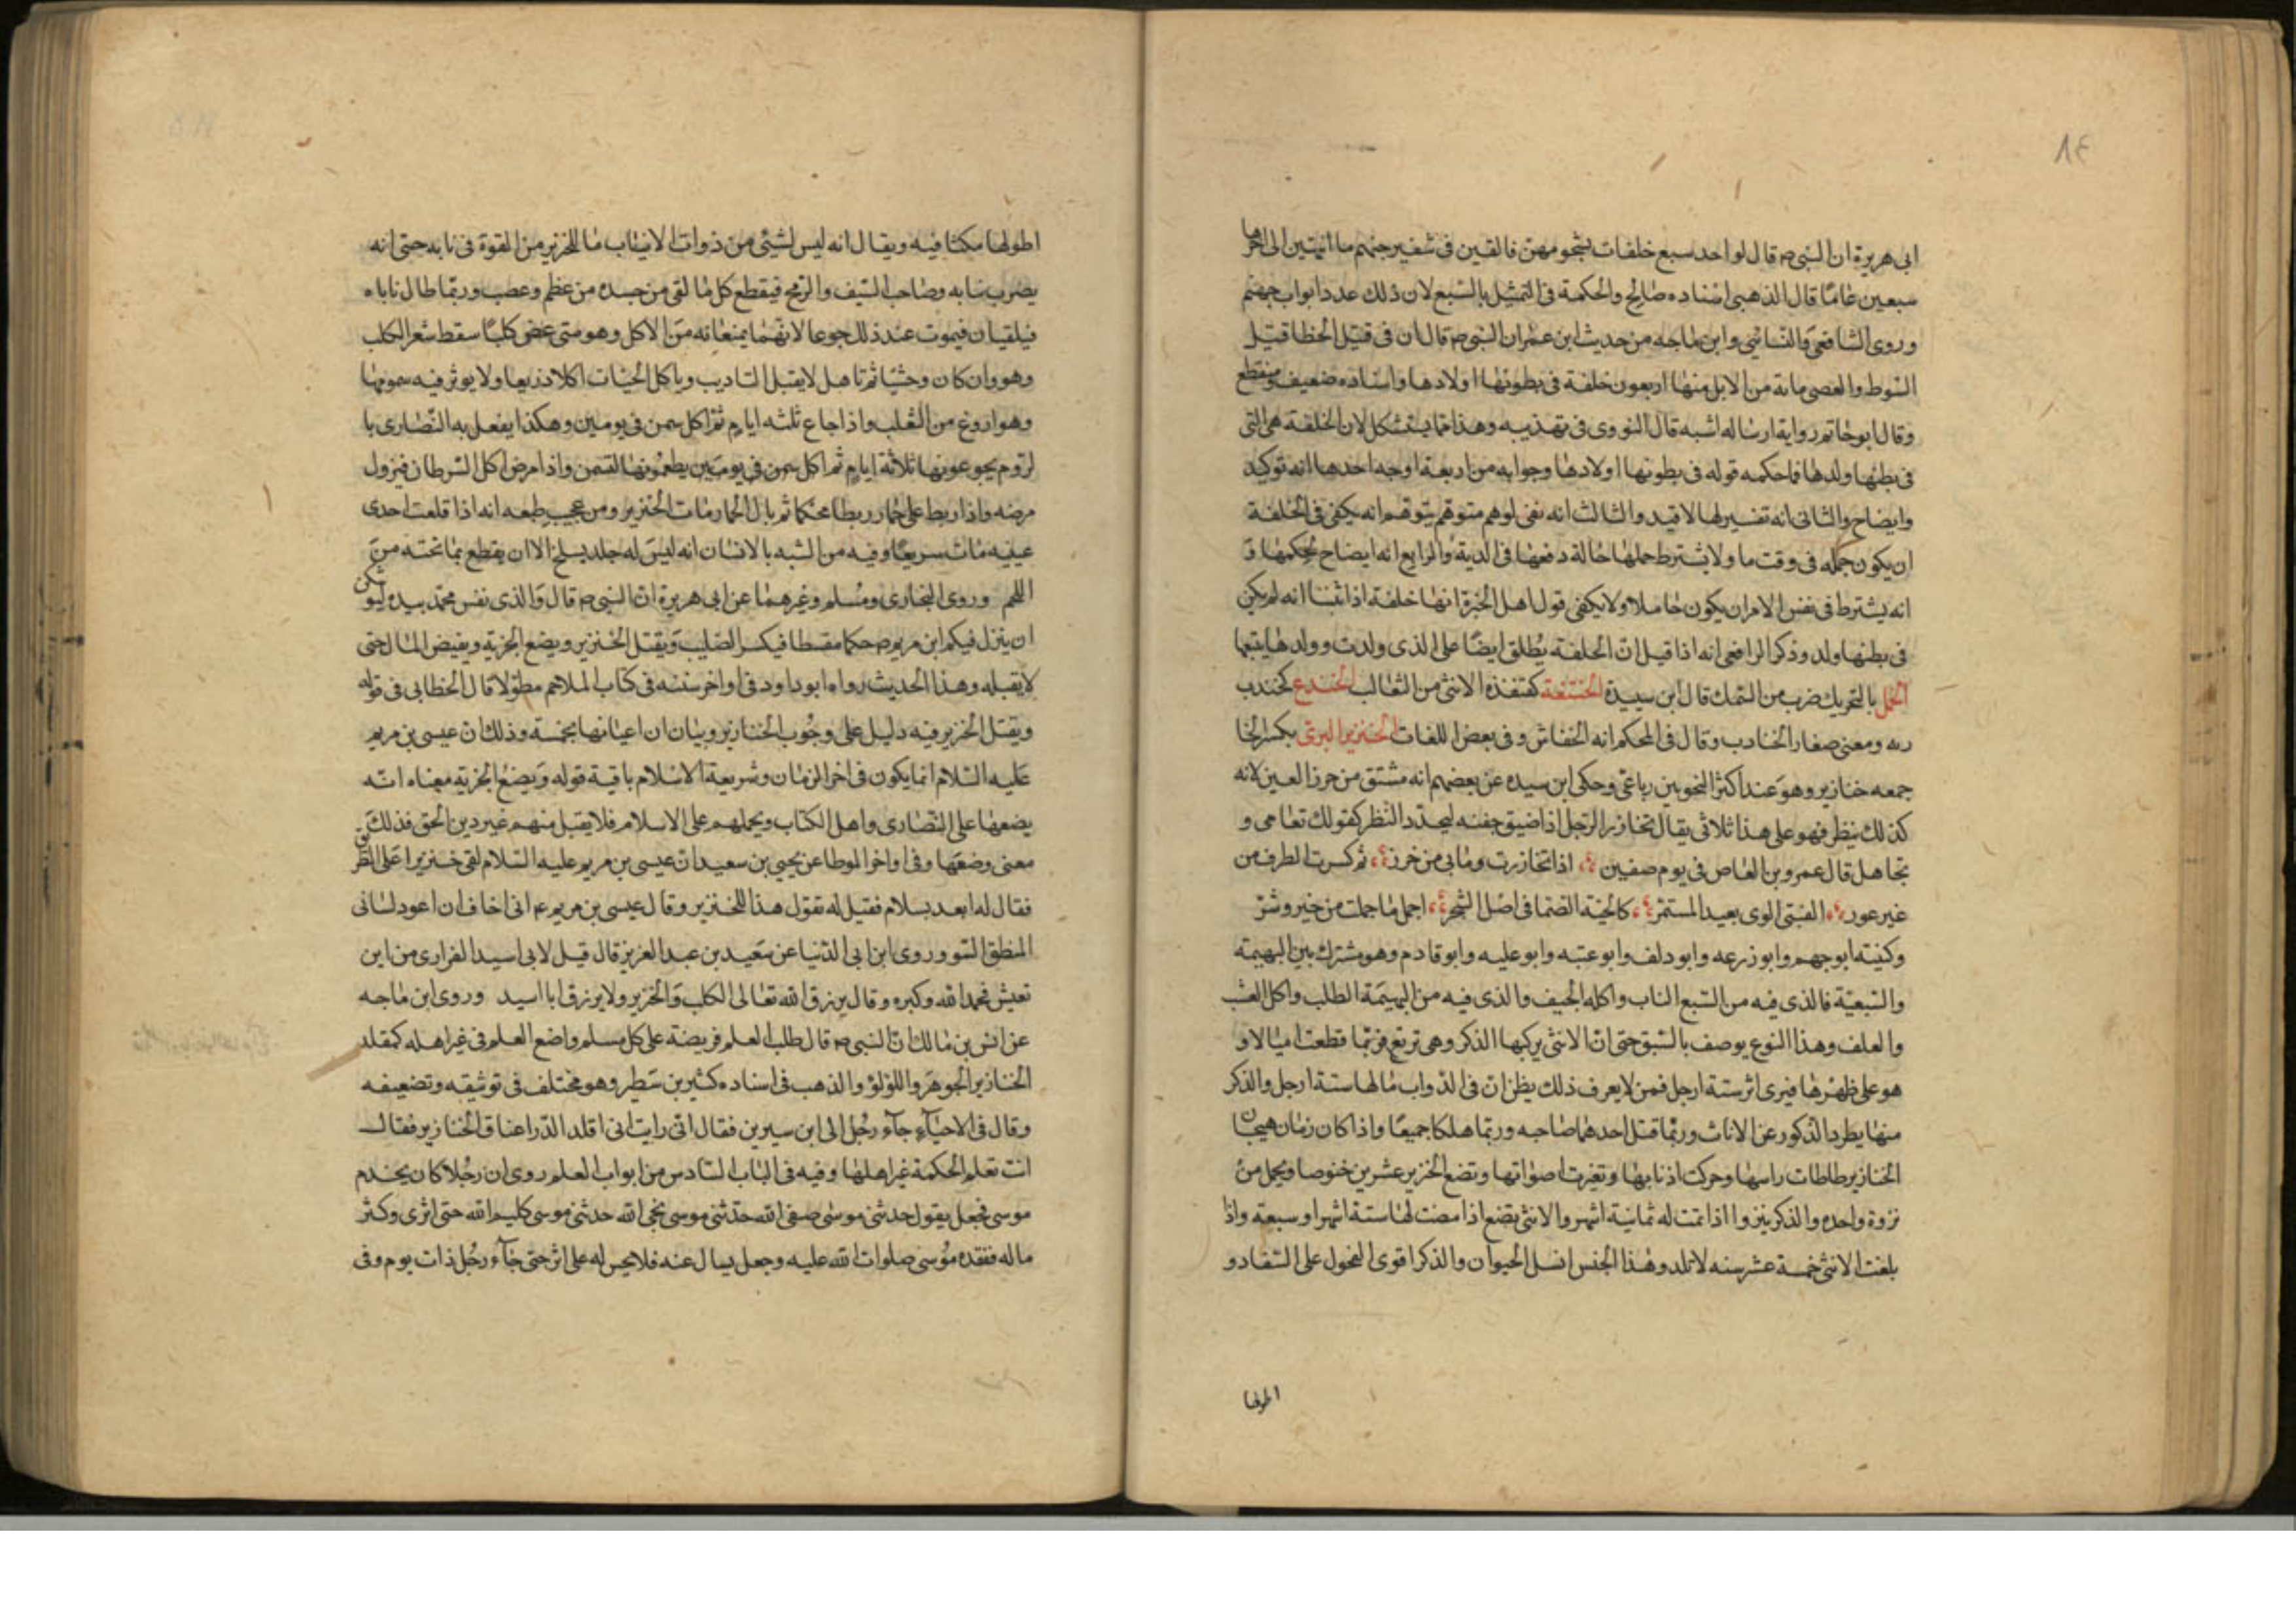 ٨٤
ابى هريرة ان النبى ص قال لو اخذ سبع خلفات بشحومهن فالقين فى شفير جهنم ما انتهين الى اخرها
سبعين عامًا قال الذهبى اسناده صالح والحكمة فى التمثيل بالسبع لان ذلك عدد ابواب جهنم
وروى الشافعى والنسائى وابن ماجه من حديث ابن عمر ان النبى ص قال ان فى قتيل الخطا قتيل
السوط والعصى مائة من الابل منها اربعون خلفة فى بطونها اولادها واسناده ضعيف ومنقطع
وقال ابو حاتم رواية ارساله اشبه قال النووى فى تهذيبه وهذا مما يستشكل لان الخلفة هى التى
فى بطنها ولدها فما حكمه قوله فى بطونها اولادها وجوابه من اربعة اوجه احدها انه توكيد
وايضاح والثانى انه تفسير لها لا قيد والثالث انه نفى لوهم متوهم يتوهم انه يكفى فى الخلفة
ان يكون حمله فى وقت ما ولا يشترط حملها حالة دفعها فى الدية والرابع انه ايضاح لحكمها و
انه يشترط فى نفس الامر ان يكون حاملا ولا يكفى قول اهل الخبرة انها خلفة اذا تبينا انه لم يكن
فى بطنها ولد وذكر الرافعى انه اذا قيل ان الخلفة يطلق ايضًا على الذى ولدت وولدها يتبعها
الخمل بالتحريك ضرب من السمك قال ابن سيدة الخنتعة كقنفذه الانثى من الثعالب الخندع كجندب
زنه ومعنى صغار الخنادب وقال فى المحكم انه الخفاش وفى بعض اللغات الخنزير البرى بكسر الخا
جمعه خنازير وهو عند اكثر النحويين رباعى وحكى ابن سيده عن بعضهم انه مشتق من خرز العين لانه
كذلك ينظر فهو على هذا ثلاثى يقال تخازر الرجل اذا ضيق جفنه ليحدد النظر كقولك تعامى و
تجاهل قال عمرو بن العاص فى يوم صفين اذا تخازرت وما بى من خرز ثم كسرت الطرف من
غير عور الفيتنى الوى بعيد المستمر كالحية الصما فى اصل الشجر احمل ما حملت من خير وشر
وكنيته ابو جهم وابو زرعه وابو دلف وابو عتبه وابو عليه وابو قادم وهو مشترك بين البهيمة
والسبعية فالذى فيه من السبع الناب واكله الجيف والذى فيه من البهيمة الظلف واكل العشب
والعلف وهذا النوع يوصف بالشبق حتى ان الانثى يركبها الذكر وهى ترتع فربما قطعت اميالا و
هو على ظهرها فيرى اثر ستة ارجل فمن لا يعرف ذلك يظن ان فى الدواب ما لها ستة ارجل والذكر
منها يطرد الذكور عن الاناث وربما قتل احدهما صاحبه وربما هلكا جميعًا واذا كان زمان هيجان
الخنازير طاطات راسها وحركت اذنابها وتغيرت اصواتها وتضع الخنزير عشرين خنوصا ويحمل من
نزوة واحدة والذكر ينزوا اذا تمت له ثمانية اشهر والانثى تضع اذا مضت لها ستة اشهر او سبعة واذا
بلغت الانثى خمسة عشر سنه لا تلد وهذا الجنس انسل الحيوان والذكر اقوى الفحول على السفاد و
اطولها
اطولها مكثا فيه ويقال انه ليس لشيئى من ذوات الانياب ما للخنزير من القوة فى نابه حتى انه
يضرب بنابه وصاحب السيف والرمح فيقطع كل ما لقى من جسده من عظم وعصب وربما طال ناباه
فيلقيان فيموت عند ذلك جوعا لانهما يمنعانه من الاكل وهو متى عض كلبًا سقط شعر الكلب
وهو وان كان وحشيًا ثم تاهل لا يقبل التاديب وياكل الحيات اكلا ذريعا ولا يوثر فيه سمومها
وهو اروغ من الثعلب واذا جاع ثلثه ايام ثم اكل سمن فى يومين وهكذا يفعل به النصارى با
لروم يجوعونها ثلاثة ايام ثم اكل سمن فى يومين يطعمونها لتسمن واذا مرض اكل السرطان فيزول
مرضه واذا ربط على حمار ربطا محكما ثم بال الحمار مات الخنزير ومن عجيب طبعه انه اذا قلعت احدى
عينيه مات سريعًا وفيه من الشبه بالانسان انه ليس له جلد يسلخ الا ان يقطع بما تحته من
اللحم وروى البخارى ومسلم وغيرهما عن ابى هريرة ان النبى ص قال والذى نفس محمد بيده ليوشكن
ان ينزل فيكم ابن مريم حكما مقسطا فيكسر الصليب ويقتل الخنزير ويضع الجزية ويفيض المال حتى
لا يقبله وهذا الحديث رواه ابو داود فى اواخر سننه فى كتاب الملاحم مطولا قال الخطابى فى قوله
ويقتل الخنزير فيه دليل على وجوب الخنازير وبيان ان اعيانها نجسة وذلك ان عيسى بن مريم
عليه السلام انما يكون فى اخر الزمان وشريعة الاسلام باقية قوله ويضع الجزية معناه انه
يضعها على النصارى واهل الكتاب ويحملهم على الاسلام فلا يقبل منهم غير دين الحق فذلك
معنى وضعها وفى اواخر الموطا عن يحيى بن سعيد ان عيسى بن مريم عليه السلام لقى خنزيرا على الطريق
فقال له ابعد بسلام فقيل له تقول هذا للخنزير وقال عيسى بن مريم ع انى اخاف ان اعود لسانى
المنطق السو وروى ابن ابى الدنيا عن سعيد بن عبد العزيز قال قيل لابى اسيد الفزارى من اين
تعيش فحمد الله وكبره وقال يرزق الله تعالى الكلب والخنزير ولا يرزق ابا اسيد وروى ابن ماجه
عن انس بن مالك ان النبى ص قال طلب العلم فريضة على كل مسلم واضع العلم فى غير اهله كمقلد
الخنازير الجوهر واللولؤ والذهب فى اسناده كثير بن شطير وهو مختلف فى توثيقه وتضعيفه
وقال فى الاحياء جاء رجل الى ابن سيرين فقال انى رايت انى اقلد الدر اعناق الخنازير فقال
انت تعلم الحكمة غير اهلها وفيه فى الباب السادس من ابواب العلم روى ان رجلا كان يخدم
موسى فجعل يقول حدثنى موسى صفى الله حدثنى موسى نجى الله حدثنى موسى كليم الله حتى اثرى وكثر
ماله ففقده موسى صلوات الله عليه وجعل يسال عنه فلا يحس له على اثر حتى جاء رجل ذات يوم وفى